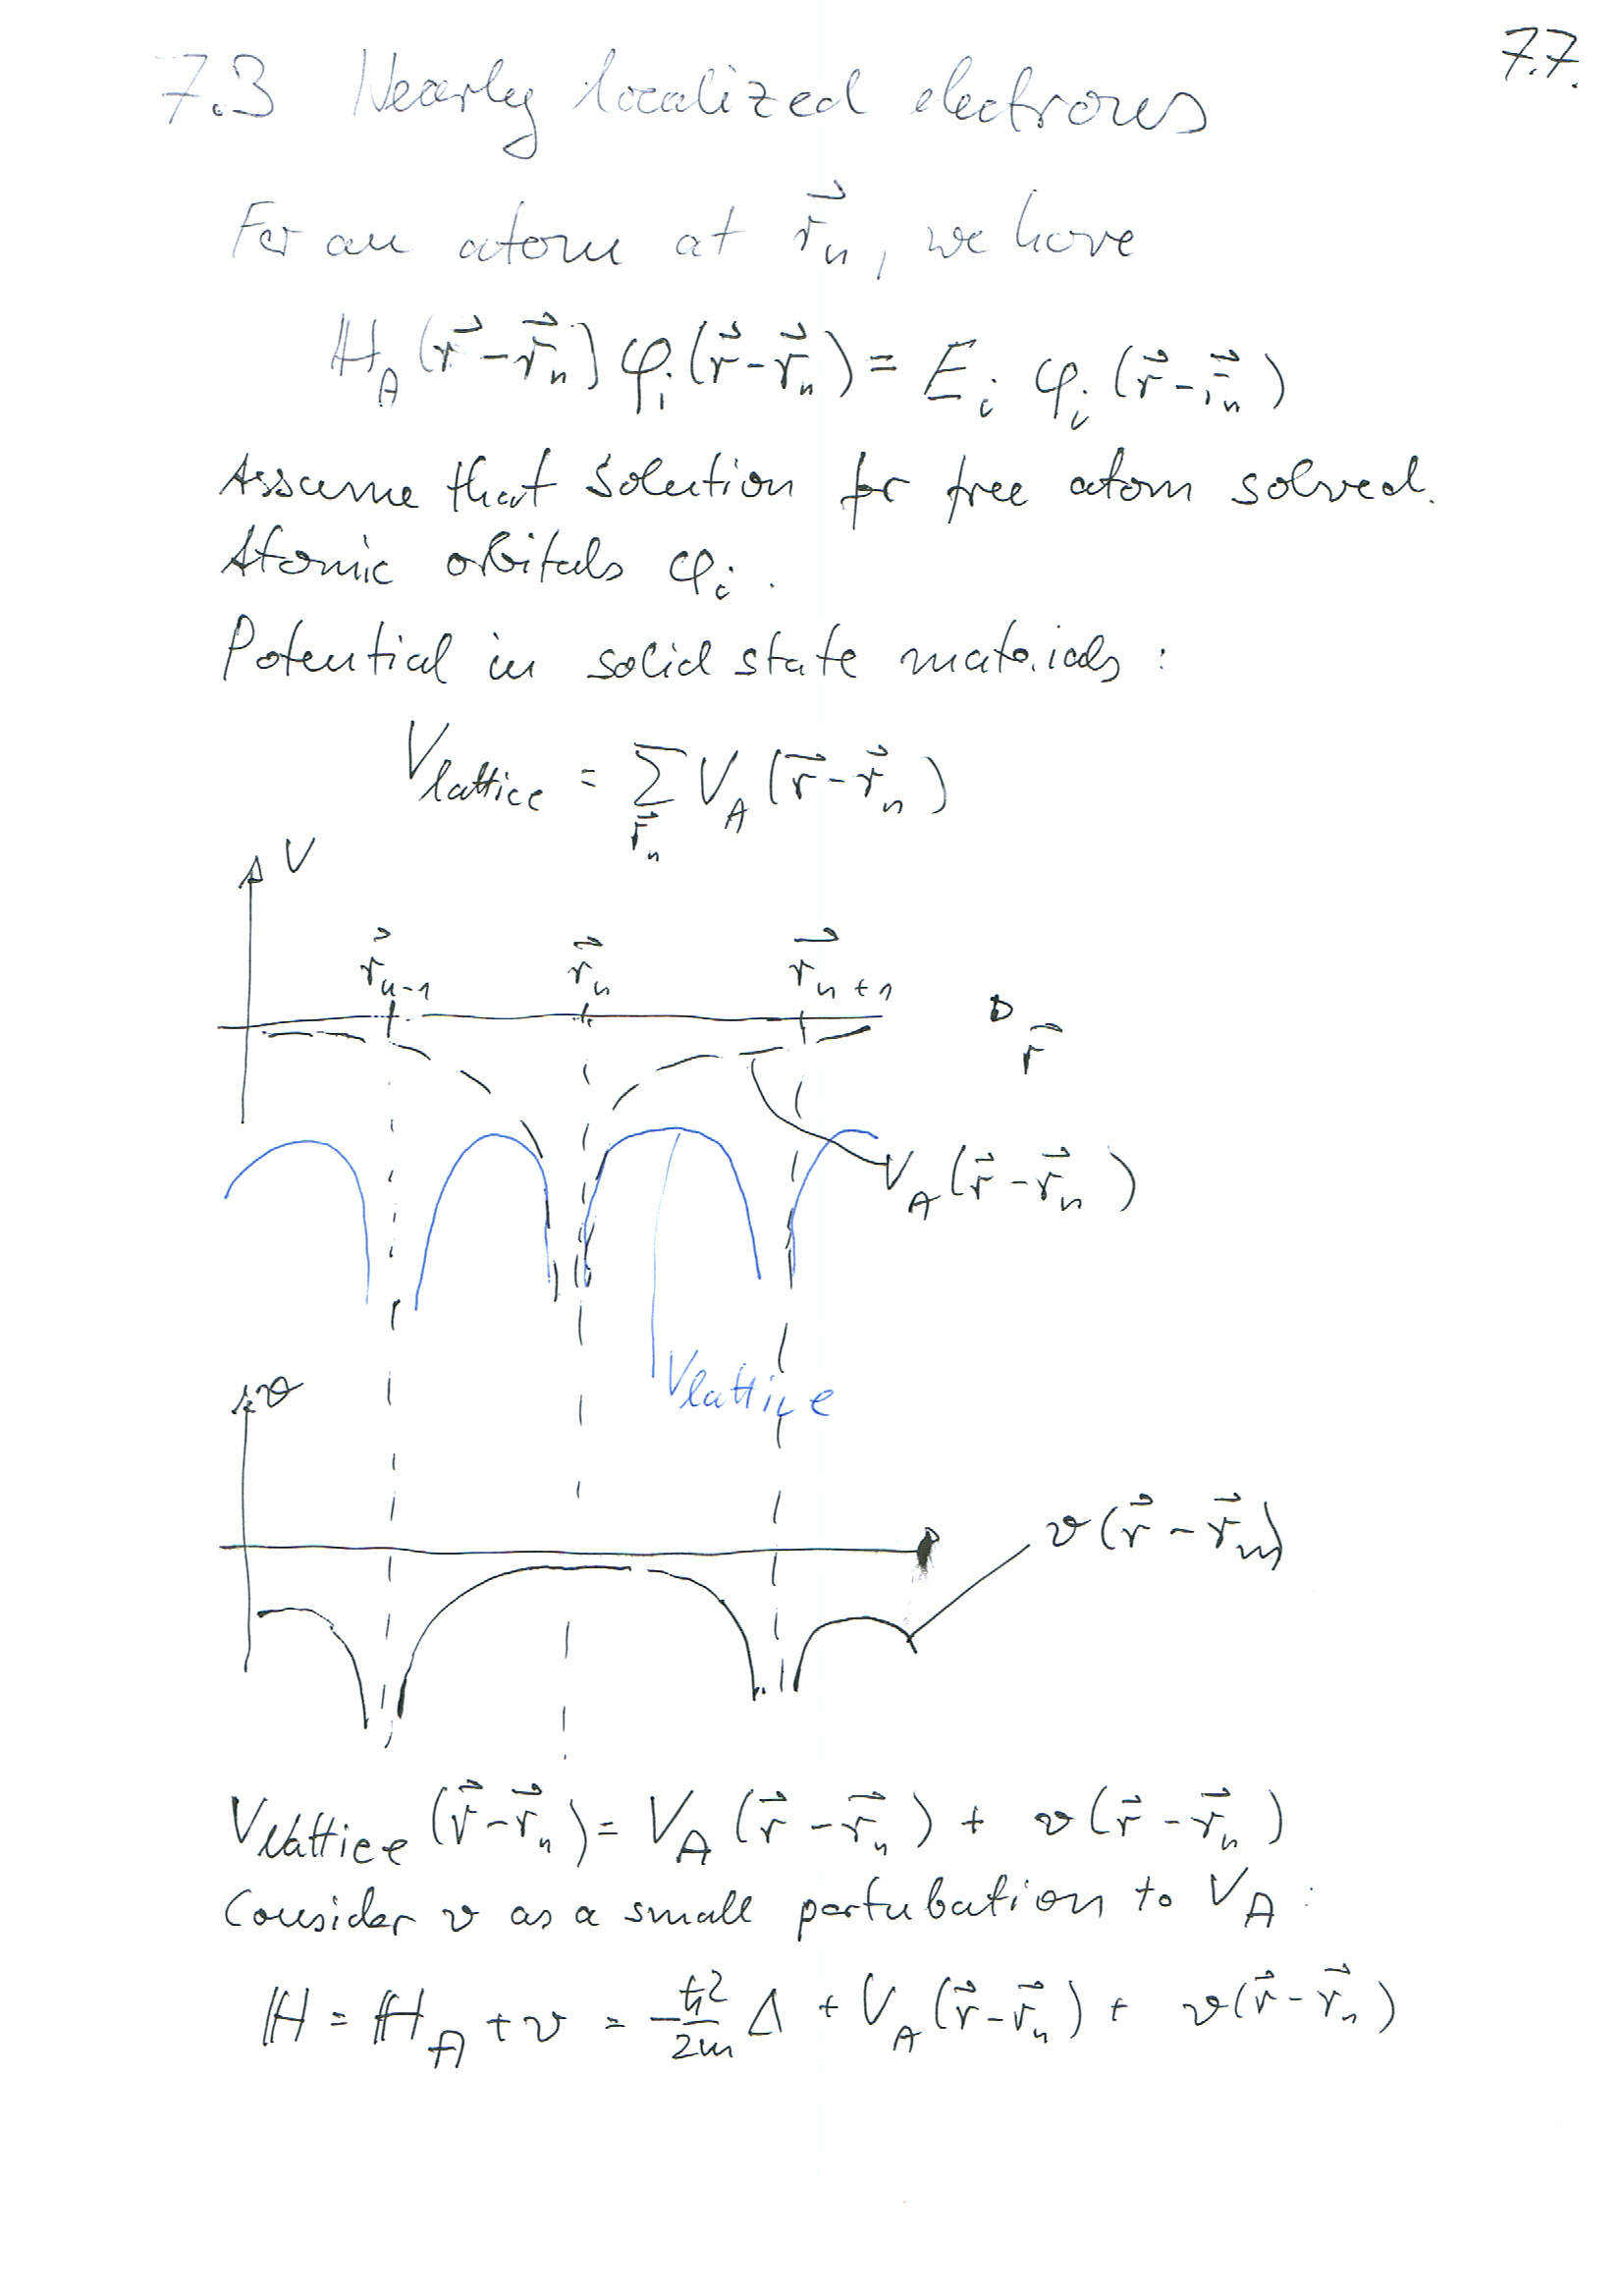 7.7.
7.3 Nearly localized electrons
For an atom at r⃗ₙ, we have
ℍ_A (r⃗ - r⃗ₙ) φᵢ (r⃗ - r⃗ₙ) = Eᵢ φᵢ (r⃗ - r⃗ₙ)
Assume that solution for free atom solved.
Atomic orbitals φᵢ.
Potential in solid state materials :
V_lattice = Σ_r⃗ₙ V_A (r⃗ - r⃗ₙ)
V
r⃗ₙ₋₁ r⃗ₙ r⃗ₙ₊₁
r⃗
V_A (r⃗ - r⃗ₙ)
V_lattice
v
v (r⃗ - r⃗ₙ)
V_lattice (r⃗ - r⃗ₙ) = V_A (r⃗ - r⃗ₙ) + v (r⃗ - r⃗ₙ)
Consider v as a small pertubation to V_A :
ℍ = ℍ_A + v = -ħ²/2m Δ + V_A (r⃗ - r⃗ₙ) + v (r⃗ - r⃗ₙ)